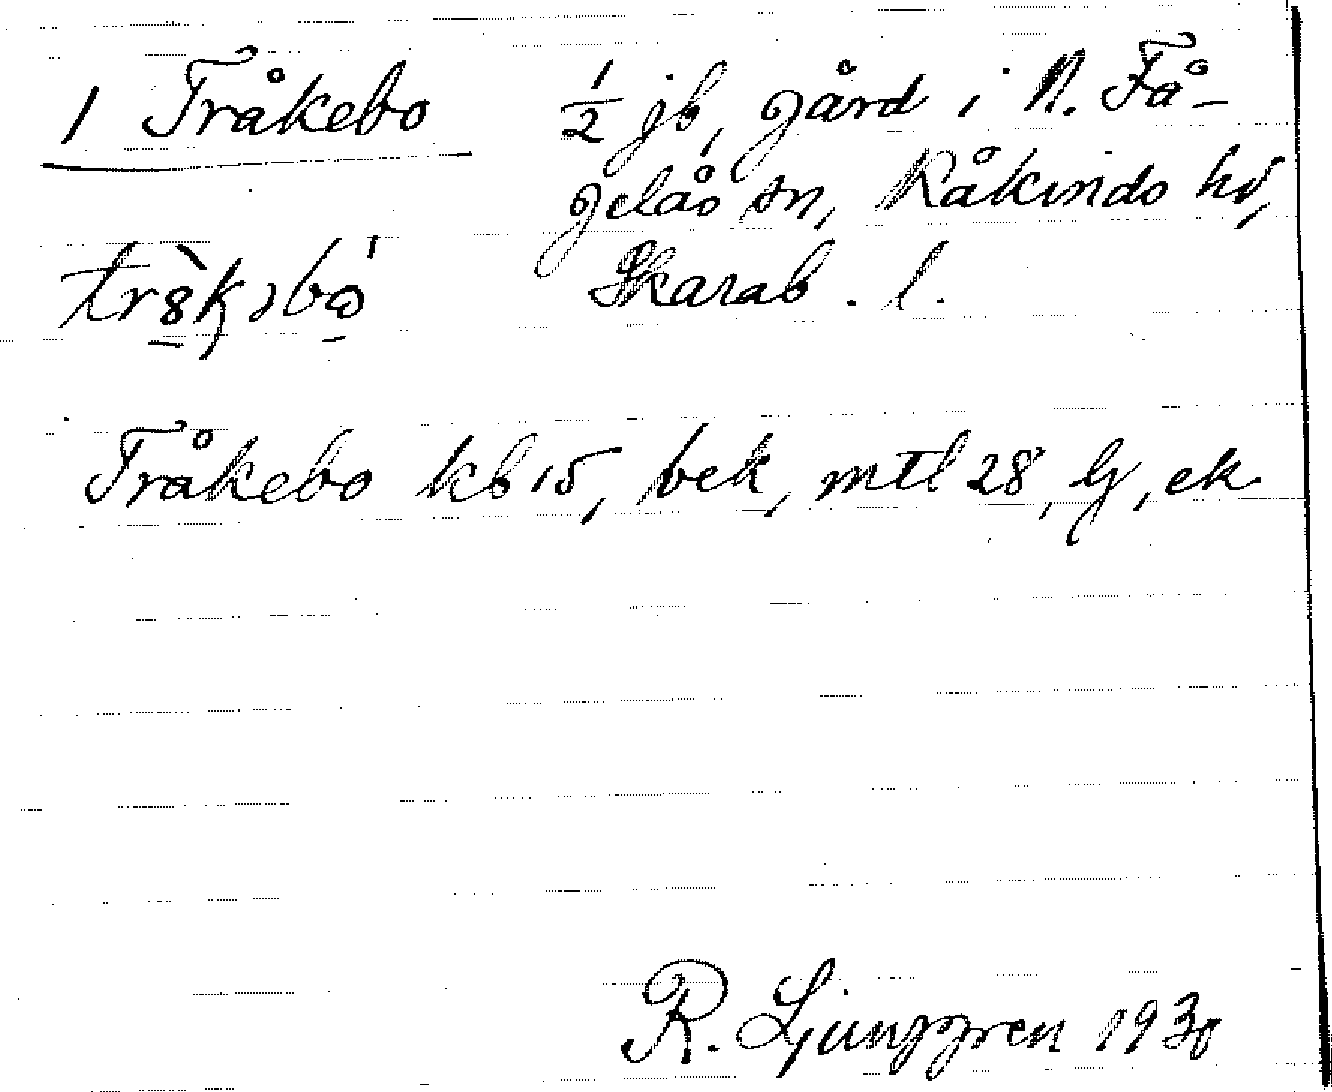 1 Tråkebo 1/2 jb, gård i N. Få-
gelås sn, Kåkinds hd,
Skarab. l.
Tråkebo kb 15, bek, mtl 28, lj, ek
R. Ljunggren 1930